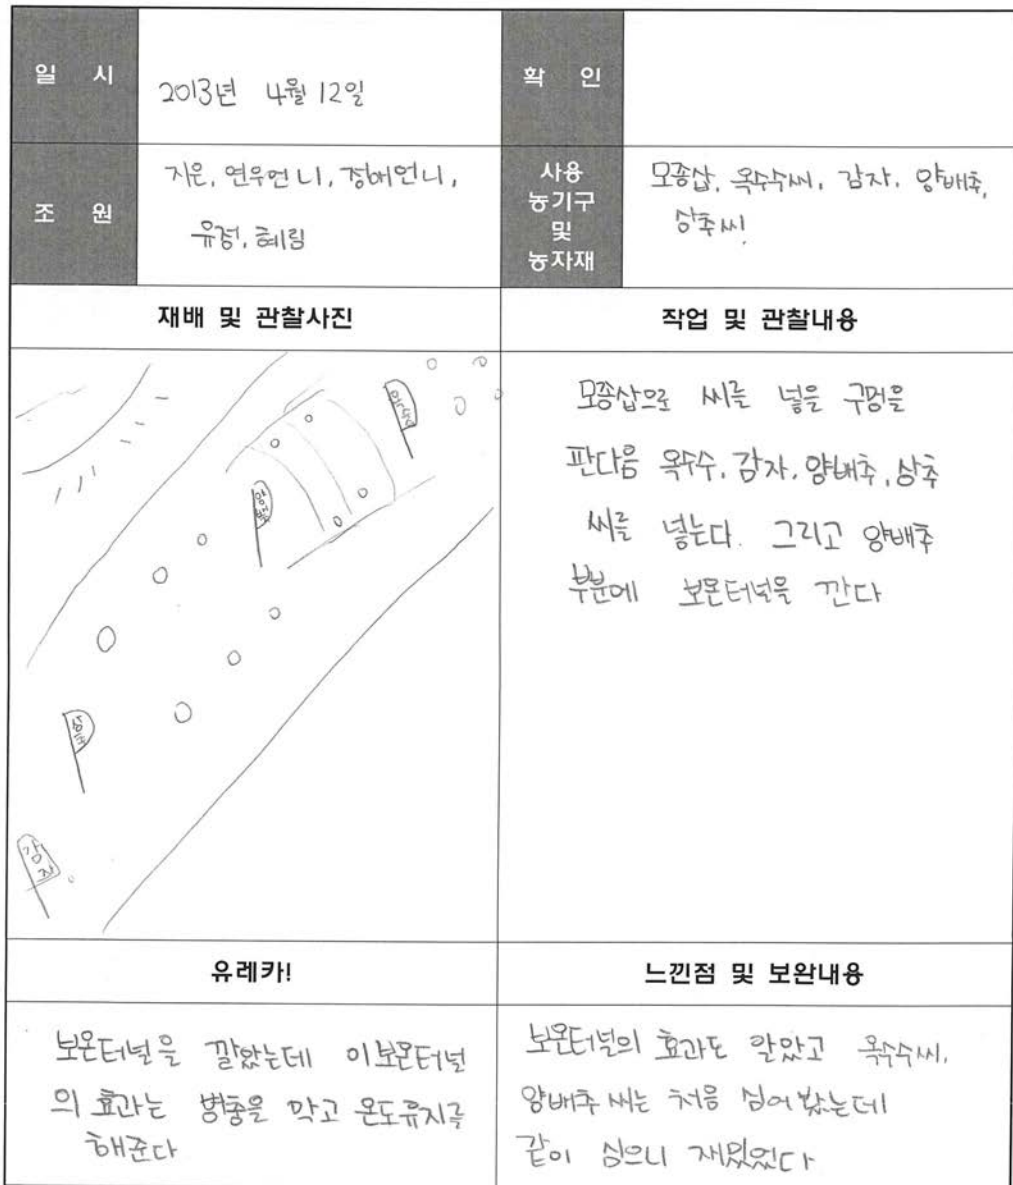 일 시
2013년 4월 12일
확 인
조 원
지은, 연우언니, 정애언니,
유정, 혜림
사용
농기구
및
농자재
모종삽, 옥수수씨, 감자, 양배추,
상추씨
재배 및 관찰사진
작업 및 관찰내용
옥수수
양배추
상추
감자
모종삽으로 씨를 넣을 구멍을
판다음 옥수수, 감자, 양배추, 상추
씨를 넣는다. 그리고 양배추
부분에 보온터널을 깐다
유레카!
느낀점 및 보완내용
보온터널을 깔았는데 이보온터널
의 효과는 병충을 막고 온도유지를
해준다
보온터널의 효과도 알았고 옥수수씨,
양배추 씨는 처음 심어 봤는데
같이 심으니 재밌었다